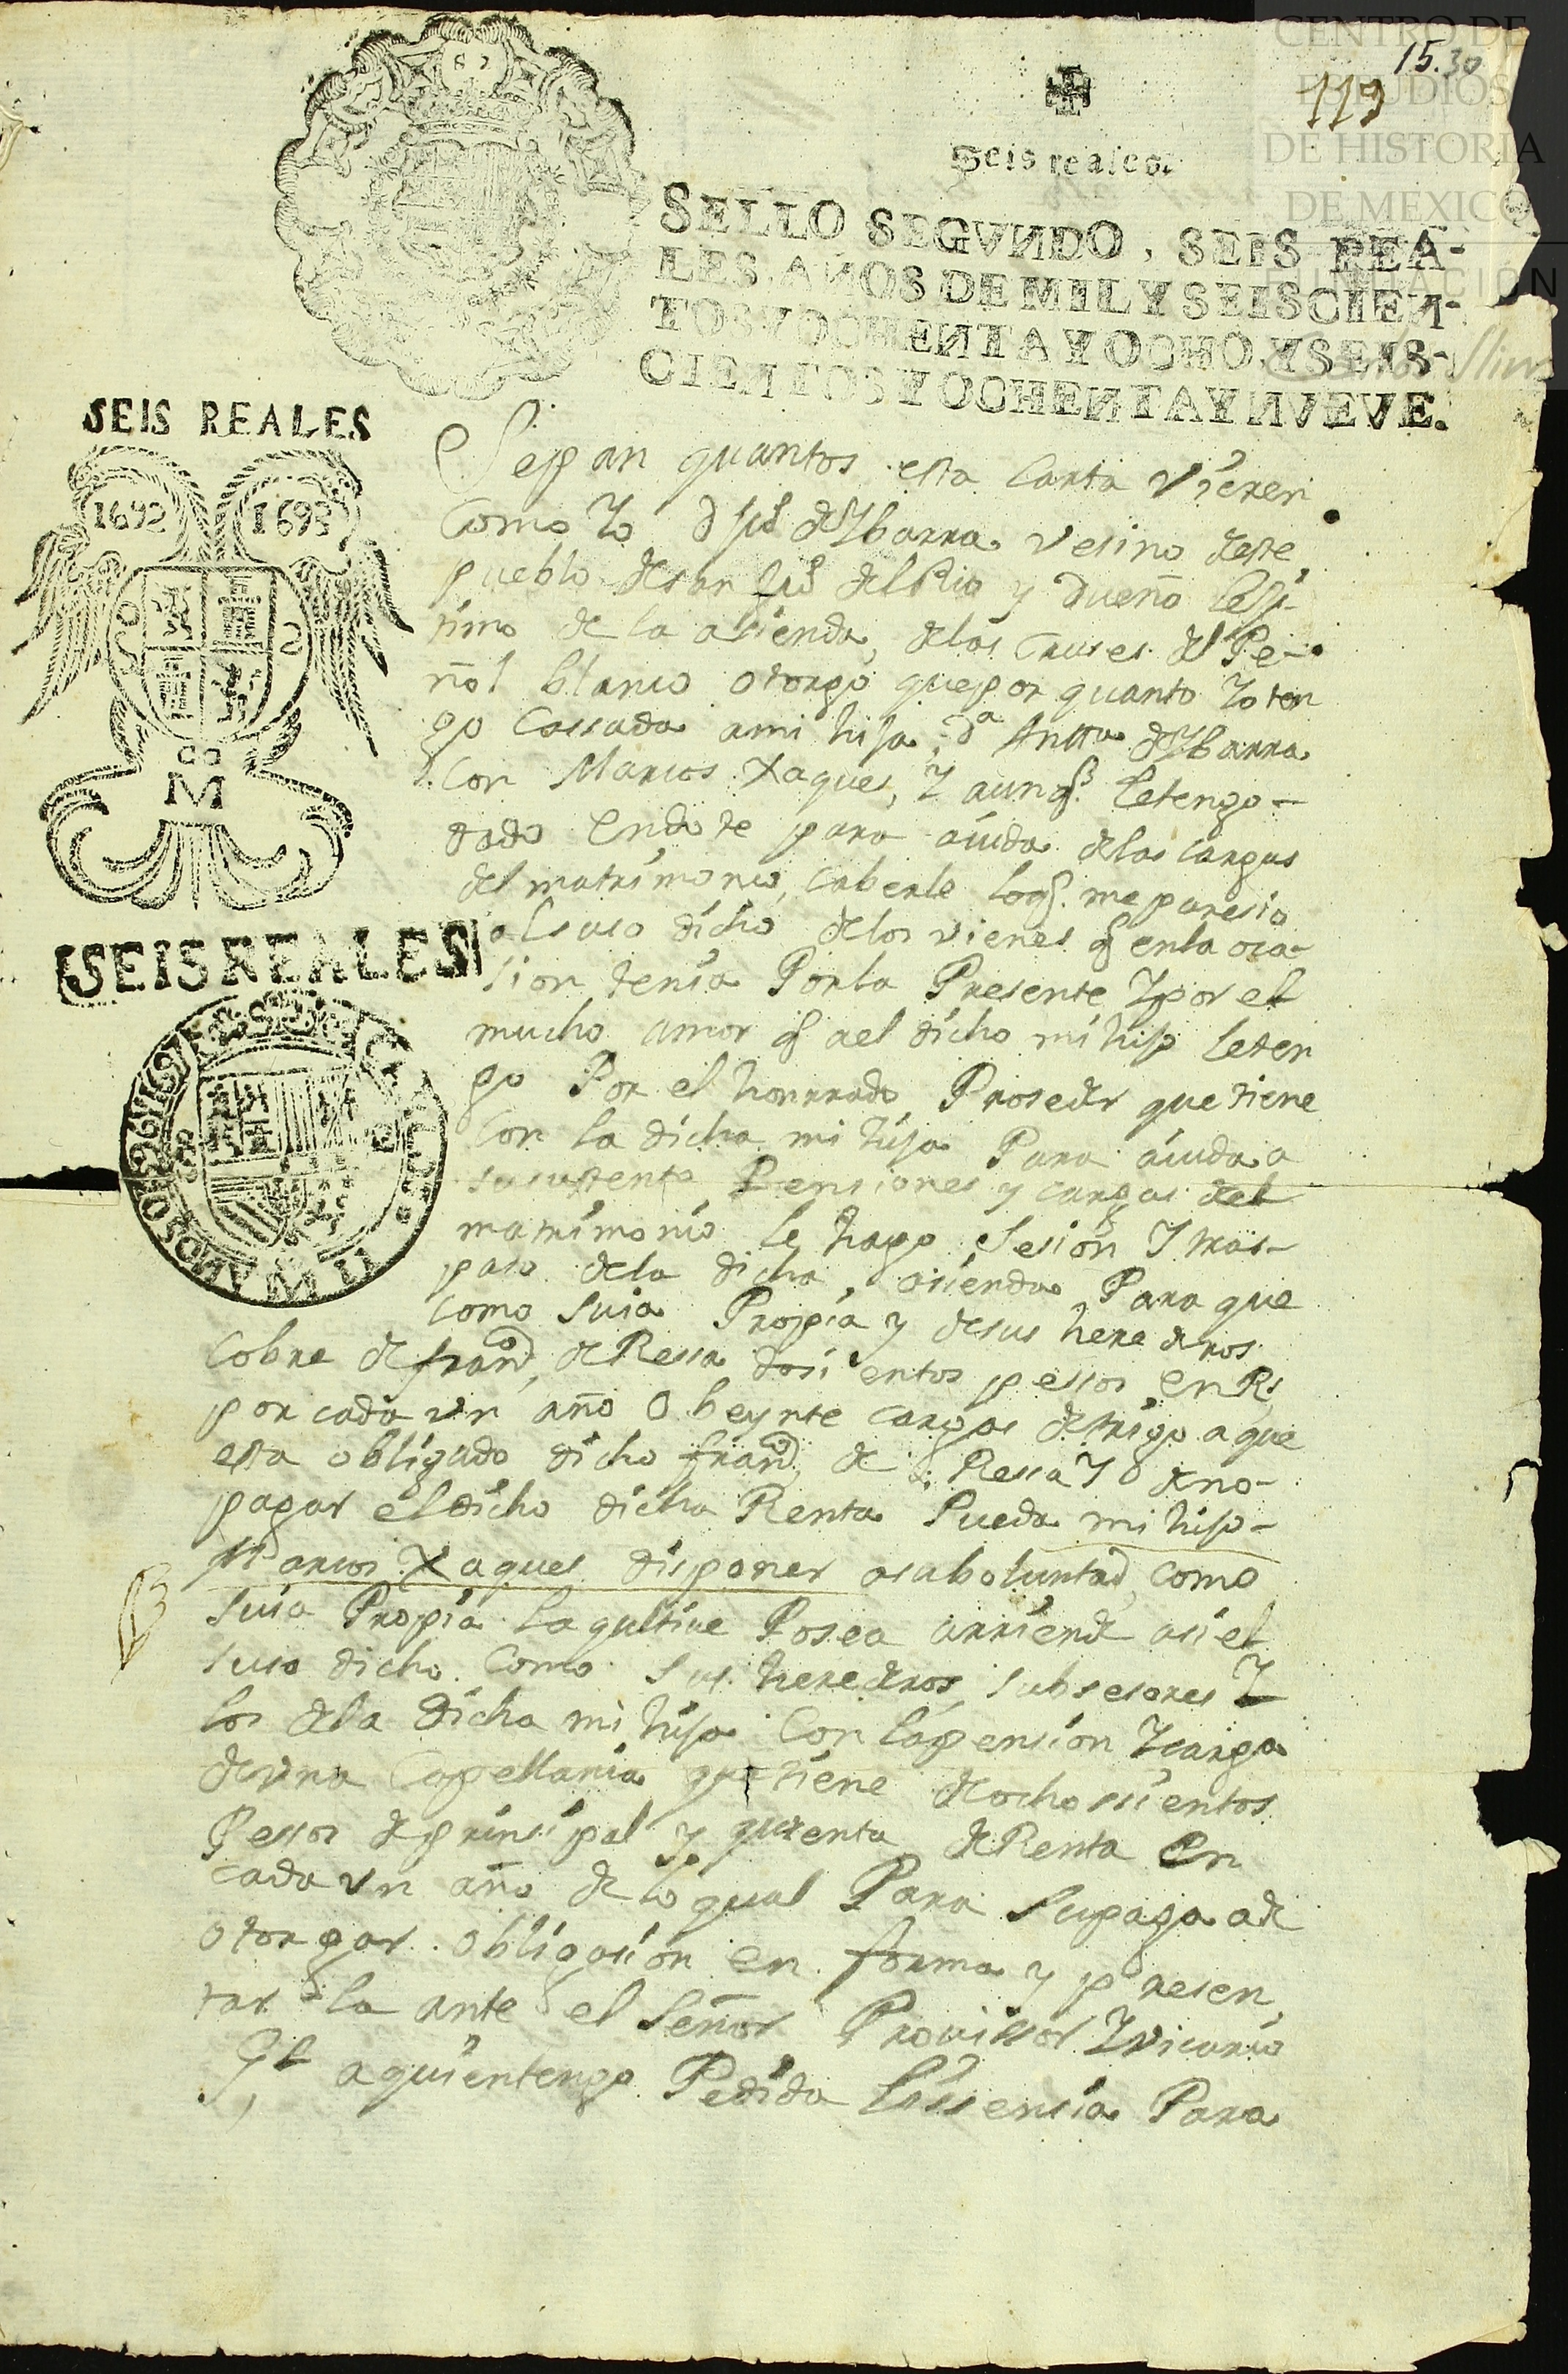 CENTRO DE
ESTUDIOS
DE HISTORIA
DE MEXICO
FUNDACIÓN
Carlos Slim
15.30
119
Seis reales.
SELLO SEGVNDO, SEIS REA-
LES, AÑOS DE MIL Y SEISCIEN-
TOS Y OCHENTA Y OCHO, Y SEIS-
CIENTOS Y OCHENTA Y NVEVE.
SEIS REALES
1692 1693
M
SEIS REALES
Sepan quantos esta Carta vieren
Como Yo d Ju.º de Ybarra vesino deste
pueblo de san Ju.º del Rio y dueño lejí-
timo de la asienda, de las Cruses del Pe-
ñol blanco otorgo que por quanto Yo ten
go Cassada a mi hija, d.ª Antt.ª de Ybarra
Con Marcos Xaques, Y aunq.e le tengo-
dado En dote para aiuda de las cargas
del matrimonio, caberle loq. me paresio
al suso dicho de los vienes q en la oca-
sion tenia Por la Presente Y por el
mucho amor q al dicho mi hijo le ten
go Por el honrrado Proseder que tiene
Con la dicha mi hija Para aiuda a
su sustento Pensiones y cargas del
matrimonio le hago, sesion Y tras-
paso de la dicha, asienda Para que
como suia Propia y de sus herederos
Cobre de fran.co de Ressa dosientos pessos en Rs
por cada vn año O beynte cargas de trigo a que
esta obligado dicho fran.co de Ressa Y o de no-
pagar el dicho dicha Renta Pueda mi hijo-
Marcos Xaques disponer a su boluntad, como
suia Propia la qultiue Posea arriende asi el
suso dicho Como sus herederos, subsesores Y
los de la dicha mi hija Con la pension Y carga
de vna Capellania que tiene de ochossientos
Pessos de prinsipal y qurenta de Renta En
cada vn año de lo qual Para su paga a de
otorgar obligasion en forma y presen
tarla ante el señor Prouissor Y vicario
G.l a quien tengo Pedida lissensia Para